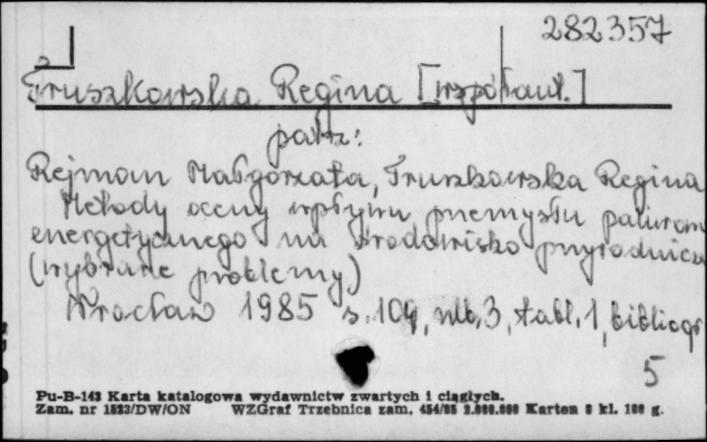 282357
Truszkowska Regina [współaut.]
patrz:
Rejman Małgorzata, Truszkowska Regina
Metody oceny wpływu przemysłu paliwowo
energetycznego na środowisko przyrodnicze
(wybrane problemy)
Wrocław 1985 s. 109, nlb. 3, tabl. 1, bibliogr
5
Pu-B-143 Karta katalogowa wydawnictw zwartych i ciągłych.
Zam. nr 1523/DW/ON WZGraf Trzebnica zam. 454/85 2.000.000 Karton 8 kl. 180 g.